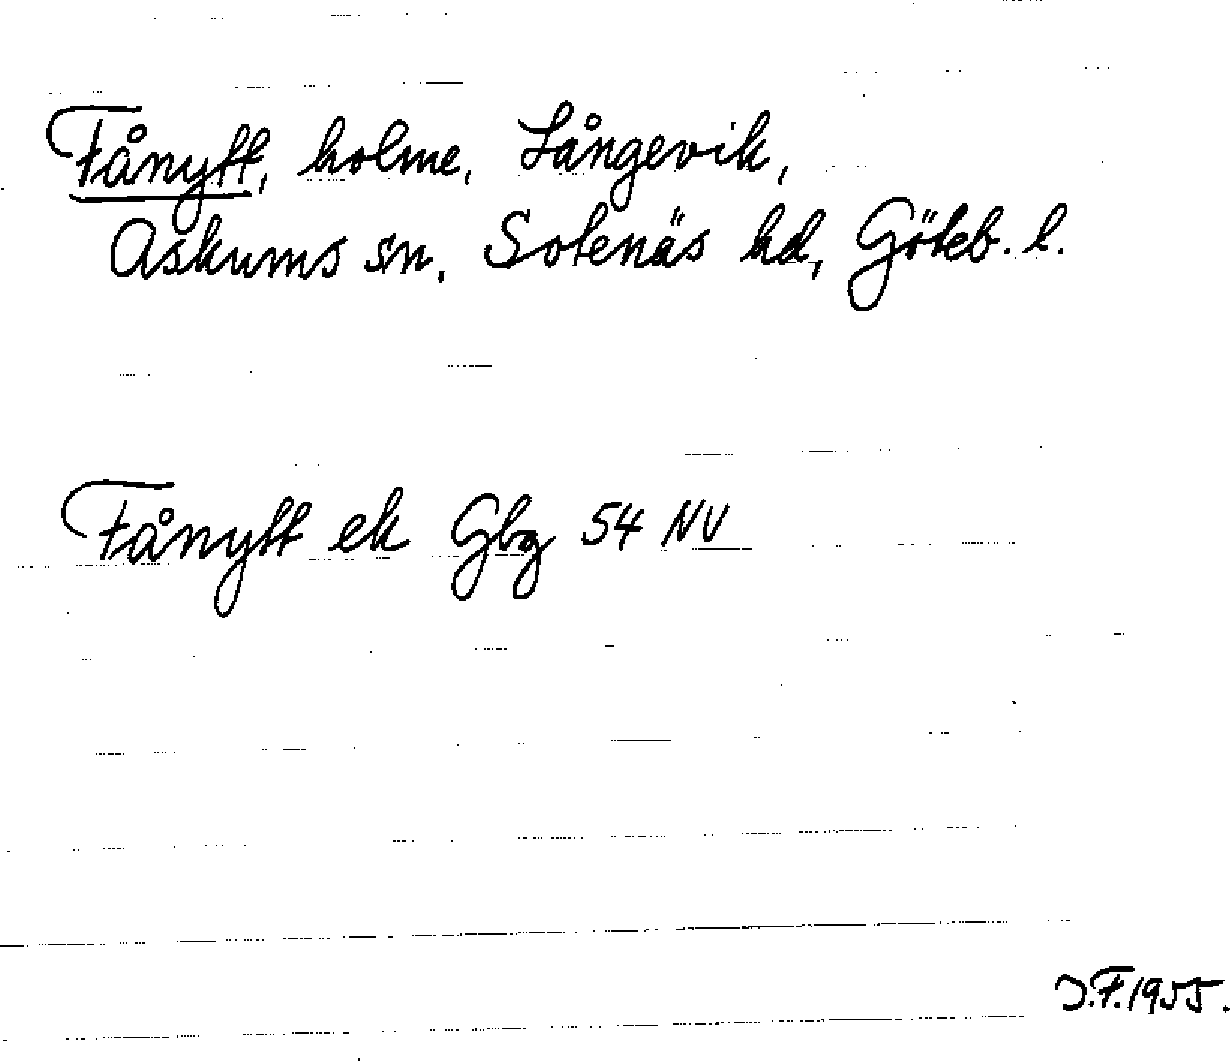 Fånytt, holme, Långevik,
Askums sn, Sotenäs hd, Göteb. l.
Fånytt ek Gbg 54 NV
J.F. 1955.